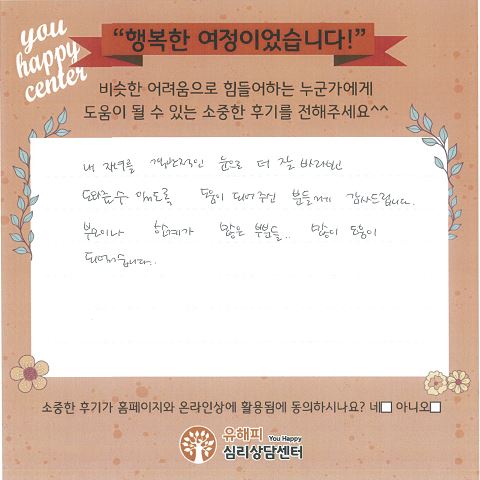 you
happy
center
“행복한 여정이었습니다!”
비슷한 어려움으로 힘들어하는 누군가에게
도움이 될 수 있는 소중한 후기를 전해주세요^^
내 자녀를 객관적인 눈으로 더 잘 바라보고
도와줄 수 있도록 도움이 되어주신 분들께 감사드립니다.
부모이나 한계가 많은 부분들.. 많이 도움이
되었습니다..
소중한 후기가 홈페이지와 온라인상에 활용됨에 동의하시나요? 네 아니오
유해피 You Happy
심리상담센터